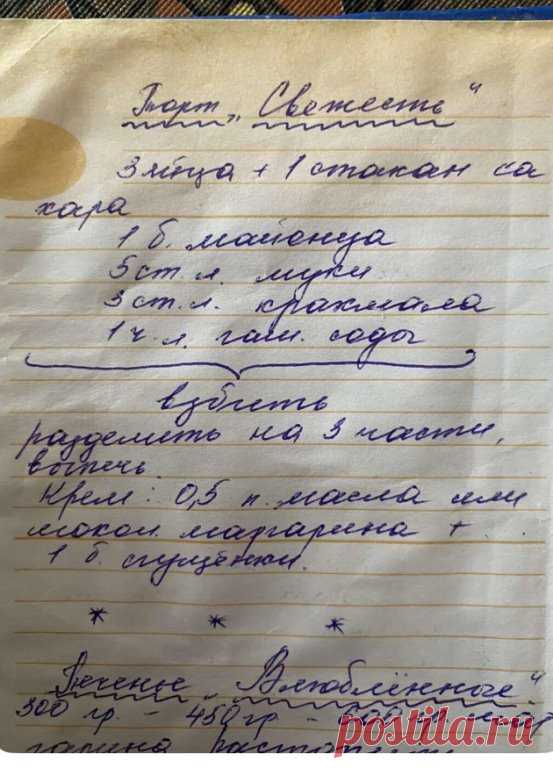 Торт „Свежесть"
3 яйца + 1 стакан са
хара
1 б. майонеза
5 ст. л. муки
3 ст. л. крахмала
1 ч. л. гаш. соды
взбить
разделить на 3 части,
выпечь.
Крем: 0,5 п. масла или
шокол. маргарина +
1 б. сгущёнки.
* * *
Печенье „Влюблённые"
300 гр. – 450 гр – 600 гр. мар
гарина растопить
postila.ru